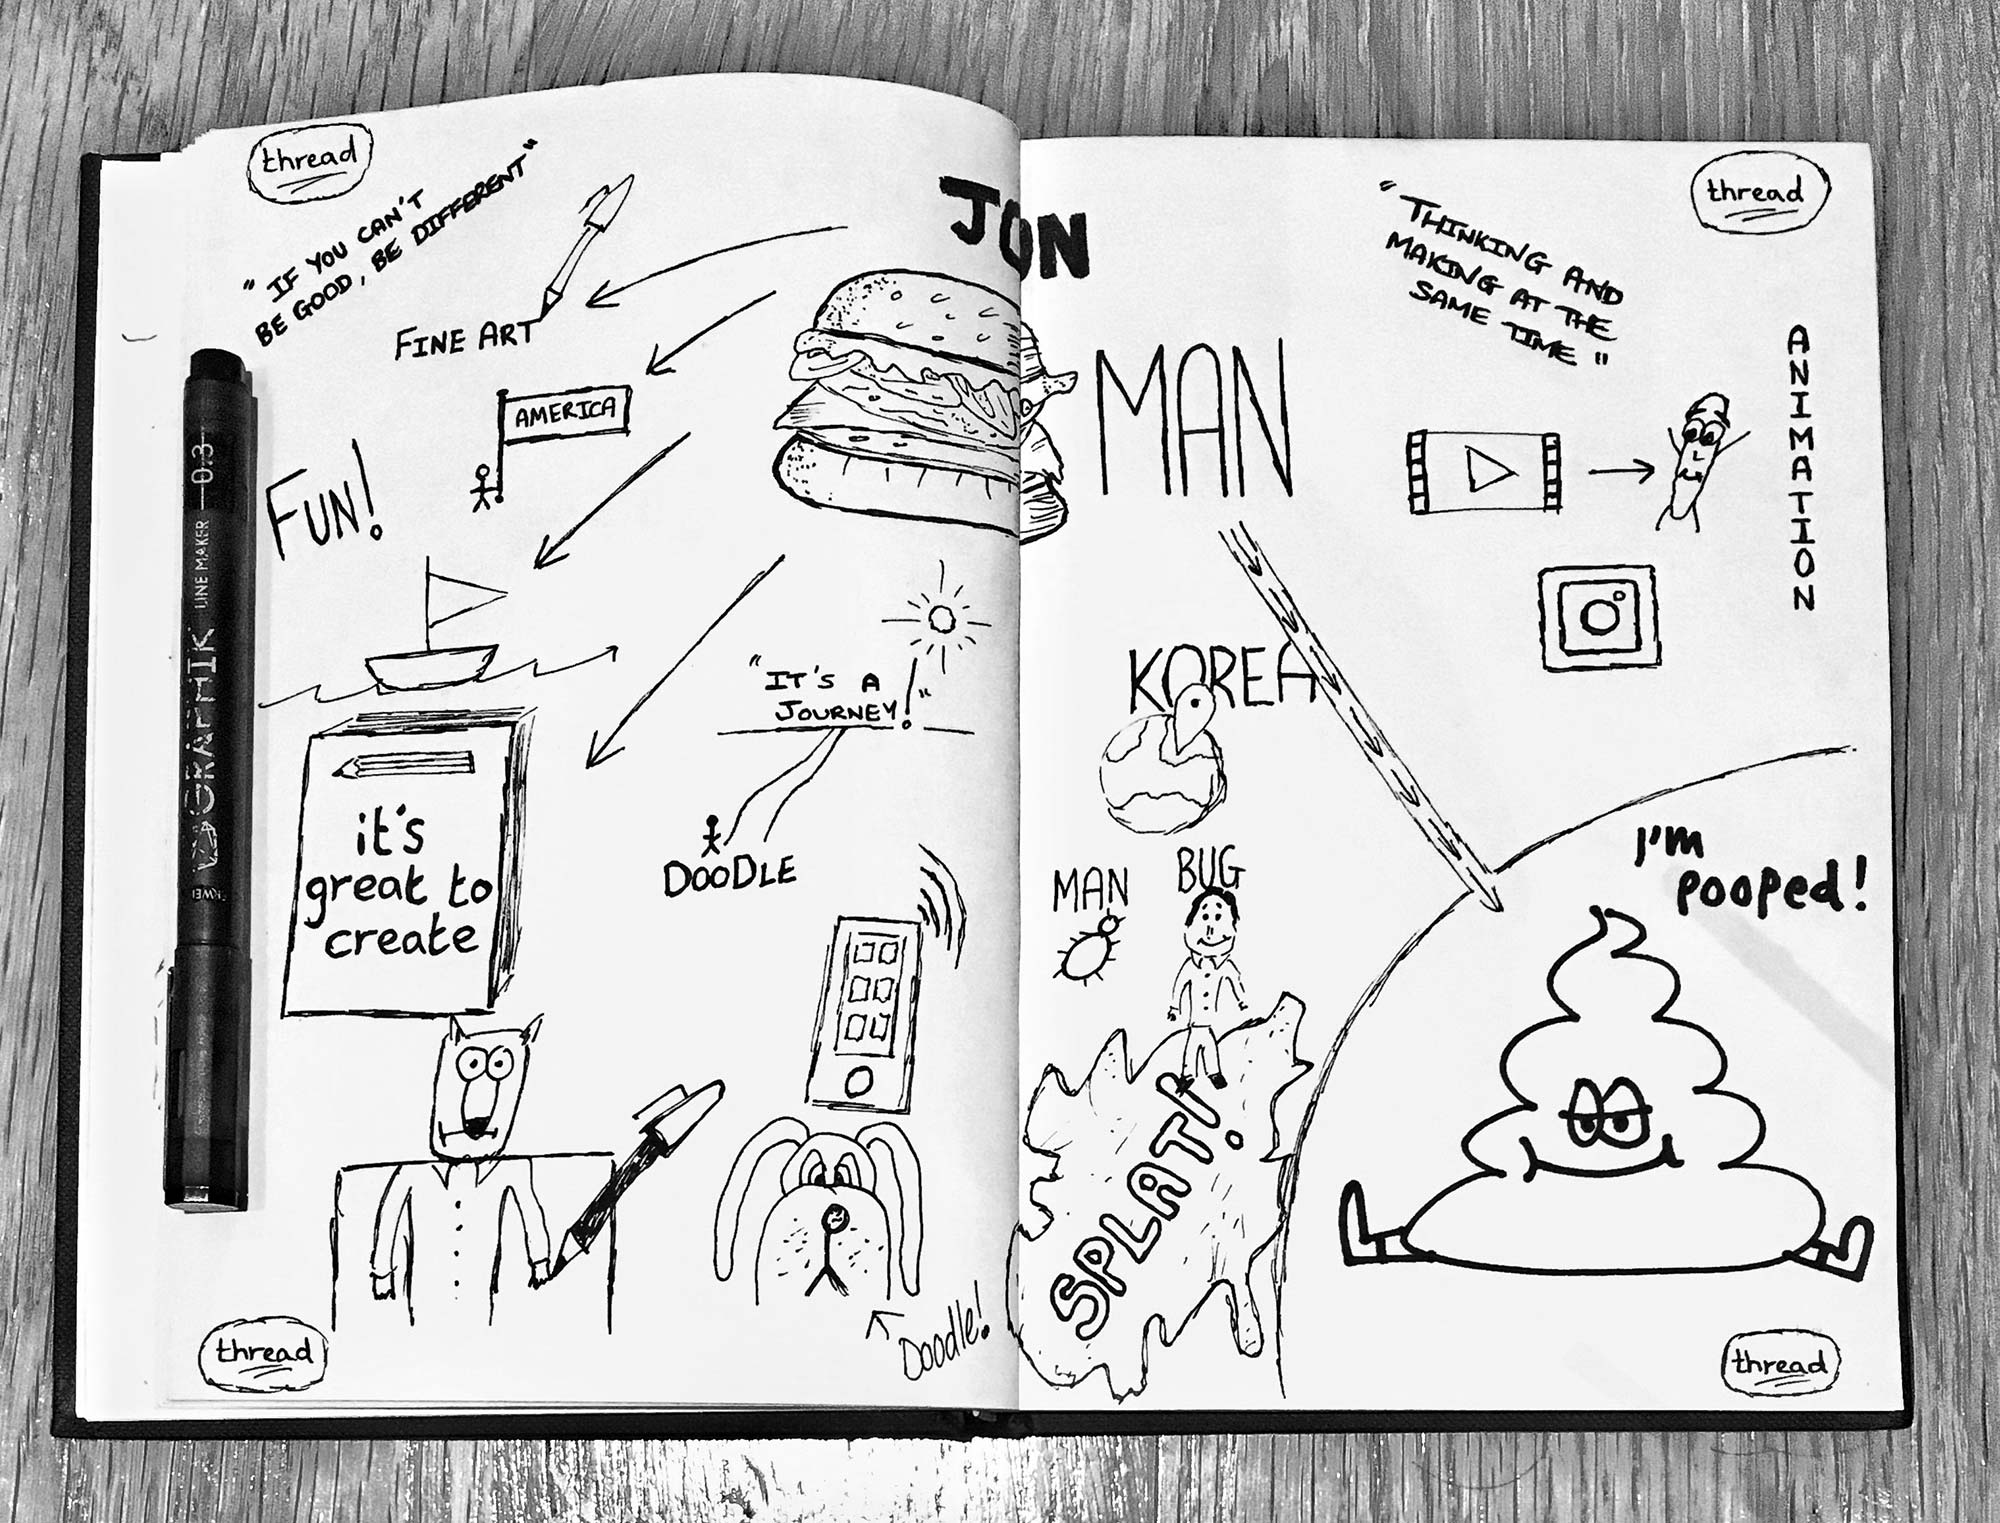 thread
"IF YOU CAN'T
BE GOOD, BE DIFFERENT"
FINE ART
AMERICA
FUN!
0.3
LINE MAKER
GRAPHIK
it's
great to
create
"IT'S A
JOURNEY!"
DOODLE
Doodle!
thread
JON
MAN
"THINKING AND
MAKING AT THE
SAME TIME"
thread
ANIMATION
KOREA
MAN
BUG
SPLAT!
I'm
pooped!
thread